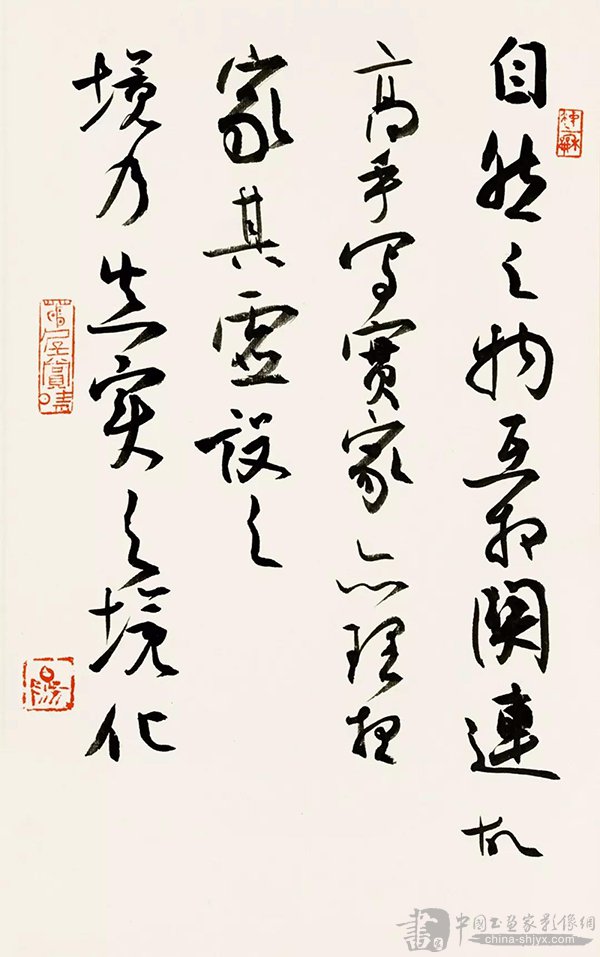 自然之物互相關連故
高手写實家亦理想
家其虛設之
境乃真实之境化
中国书画家影像網
china-shjyx.com